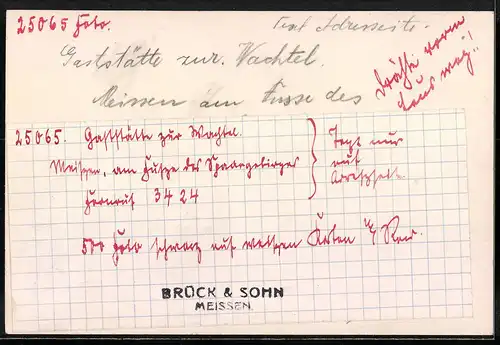 25065 Foto.
Text Adresseite.
Gaststätte zur Wachtel.
Meissen am Fusse des
Drähte vorm
Haus weg!!
25065. Gaststätte zur Wachtel.
Meissen, am Fusse des Spaargebirges
Fernruf 3424
Text nur
auf
Adresseite
500 Foto schwarz auf weissen Karton
BRÜCK & SOHN
MEISSEN